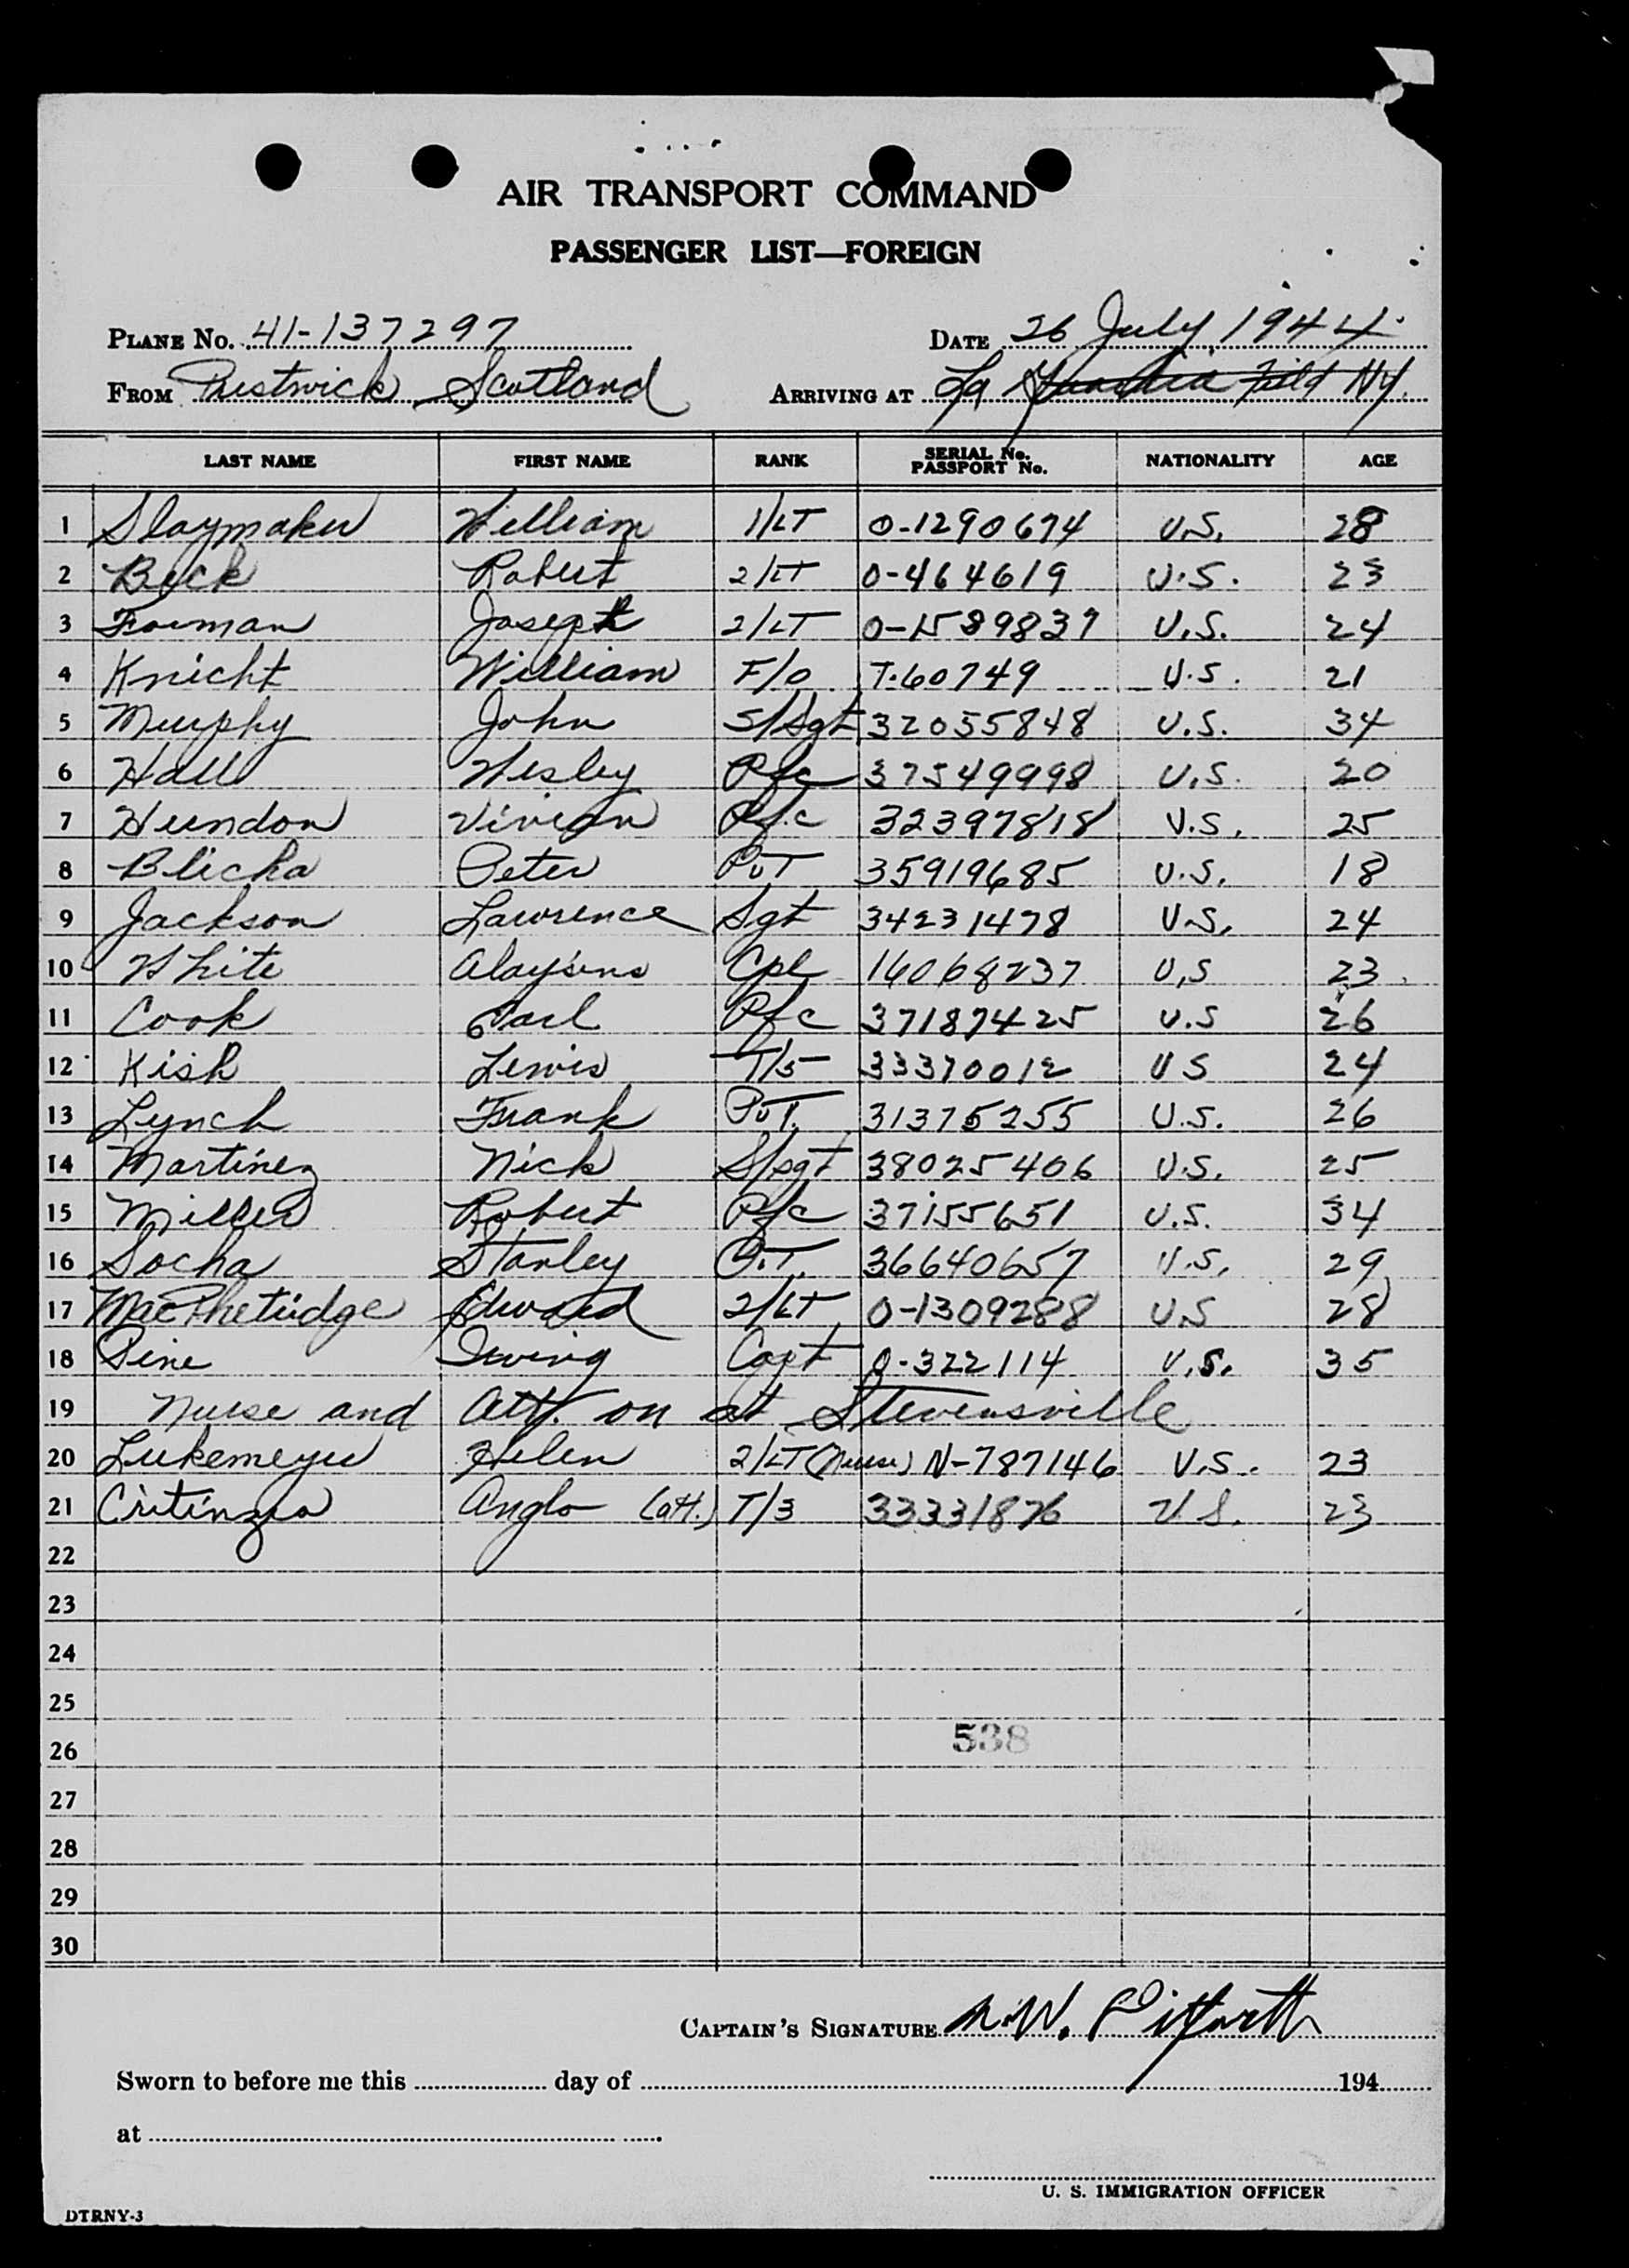 AIR TRANSPORT COMMAND
PASSENGER LIST—FOREIGN
PLANE No. 41-137297 DATE 26 July, 1944
FROM Prestwick, Scotland ARRIVING AT La Guardia Field NY.
LAST NAME FIRST NAME RANK SERIAL No. PASSPORT No. NATIONALITY AGE
1 Slaymaker William 1/LT O-1290674 U.S. 28
2 Beck Robert 2/LT O-464619 U.S. 23
3 Forman Joseph 2/LT O-1589839 U.S. 24
4 Knicht William F/O T-60749 U.S. 21
5 Murphy John S/Sgt 32055848 U.S. 34
6 Hall Wesley Pfc 37549998 U.S. 20
7 Herndon Vivian Pfc 32397818 U.S. 25
8 Blicha Peter PvT 35919685 U.S. 18
9 Jackson Lawrence Sgt 34231478 U.S. 24
10 White Cpl 16068237 U.S 23
11 Cook Carl Pfc 37187425 U.S 26
12 Kish Lewis T/5 33370012 US 24
13 Lynch Frank PvT. 31375255 U.S. 26
14 Martinez Nick S/Sgt 38025406 U.S. 25
15 Miller Robert Pfc 37155651 U.S. 34
16 Socha Stanley 36640657 U.S. 29
17 Edward 2/LT O-1309288 U.S 28
18 Pine Irving Capt O-322114 U.S. 35
19 Nurse and Att. on at Stevensville
20 Lukemeyer Helen 2/LT (Nurse) N-787146 U.S. 23
21 Anglo (att.) T/3 33331876 U.S. 23
22
23
24
25
26 538
27
28
29
30
CAPTAIN'S SIGNATURE
Sworn to before me this day of 194
at
U. S. IMMIGRATION OFFICER
DTRNY-3